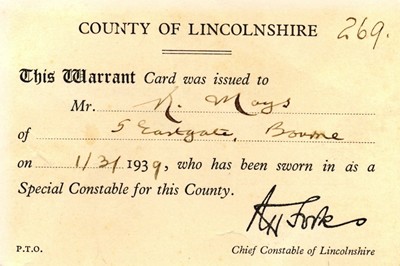 COUNTY OF LINCOLNSHIRE 269.
This Warrant Card was issued to
Mr. R. Mays
of 5 Eastgate, Bourne
on 1/3/1939, who has been sworn in as a
Special Constable for this County.
P.T.O. Chief Constable of Lincolnshire